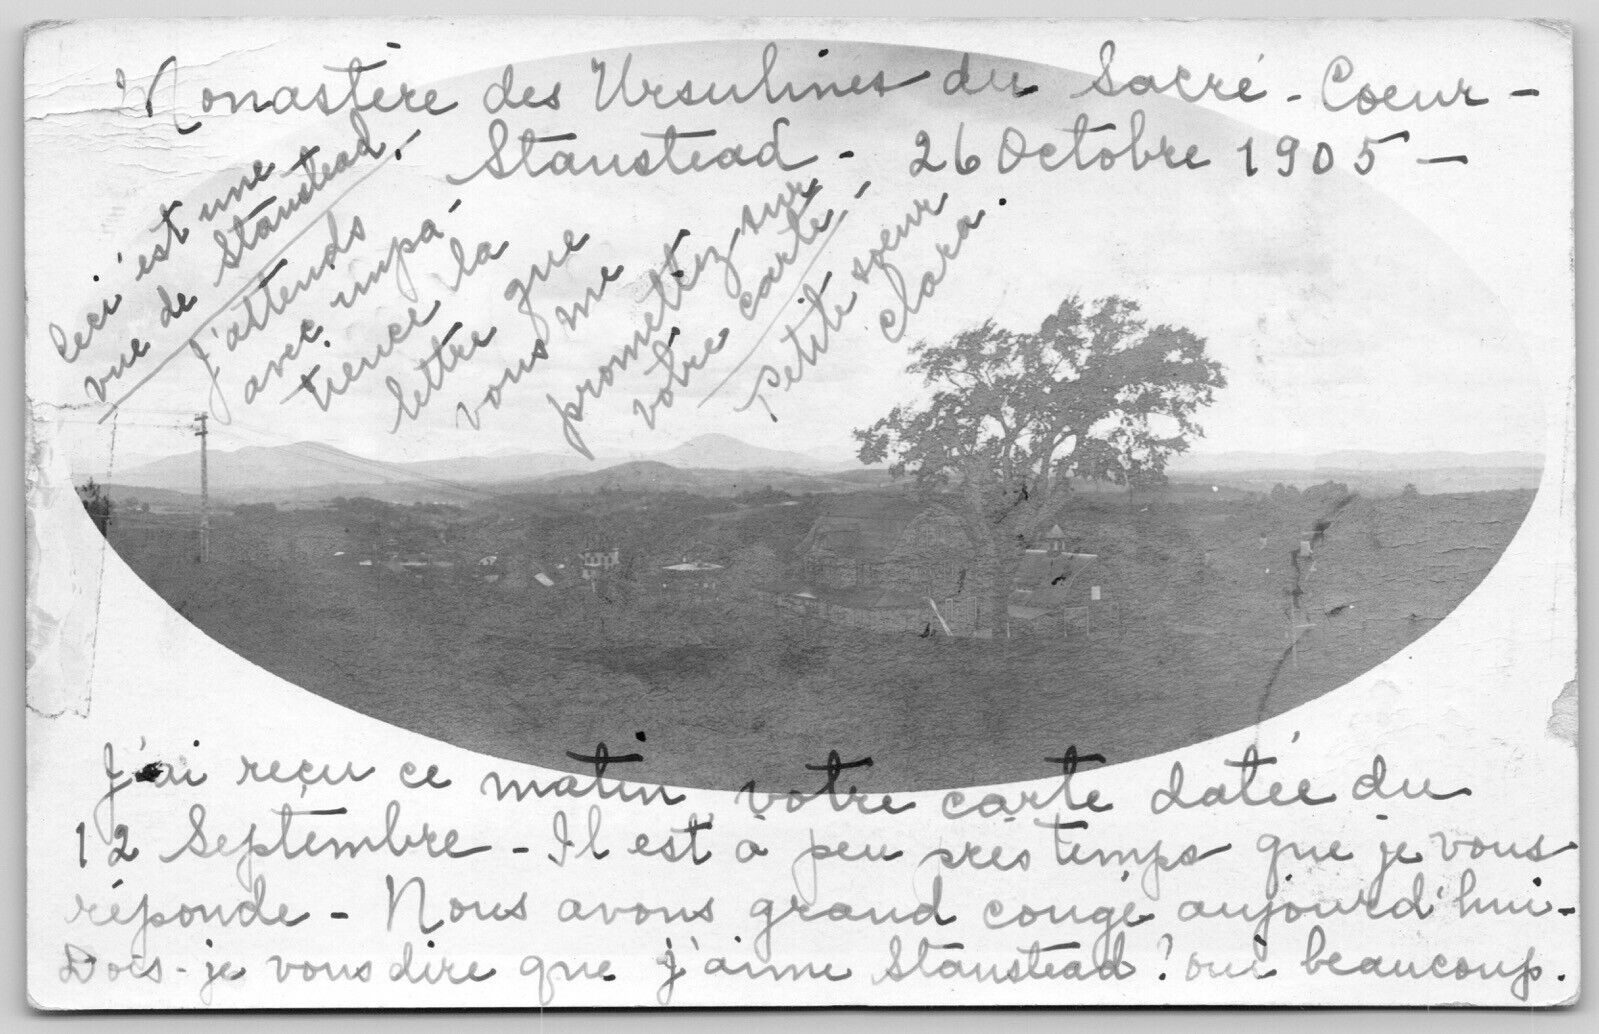 Monastère des Ursulines du Sacré-Coeur-
Stanstead - 26 Octobre 1905 -
Ceci est une
vue de Stanstead.
J'attends
avec impa-
tience la
lettre que
vous me
promettez sur
votre carte,
Petite soeur
Clara.
J'ai reçu ce matin votre carte datée du
12 Septembre - Il est à peu près temps que je vous
réponde - Nous avons grand congé aujourd'hui -
Dois-je vous dire que j'aime Stanstead? oui beaucoup.